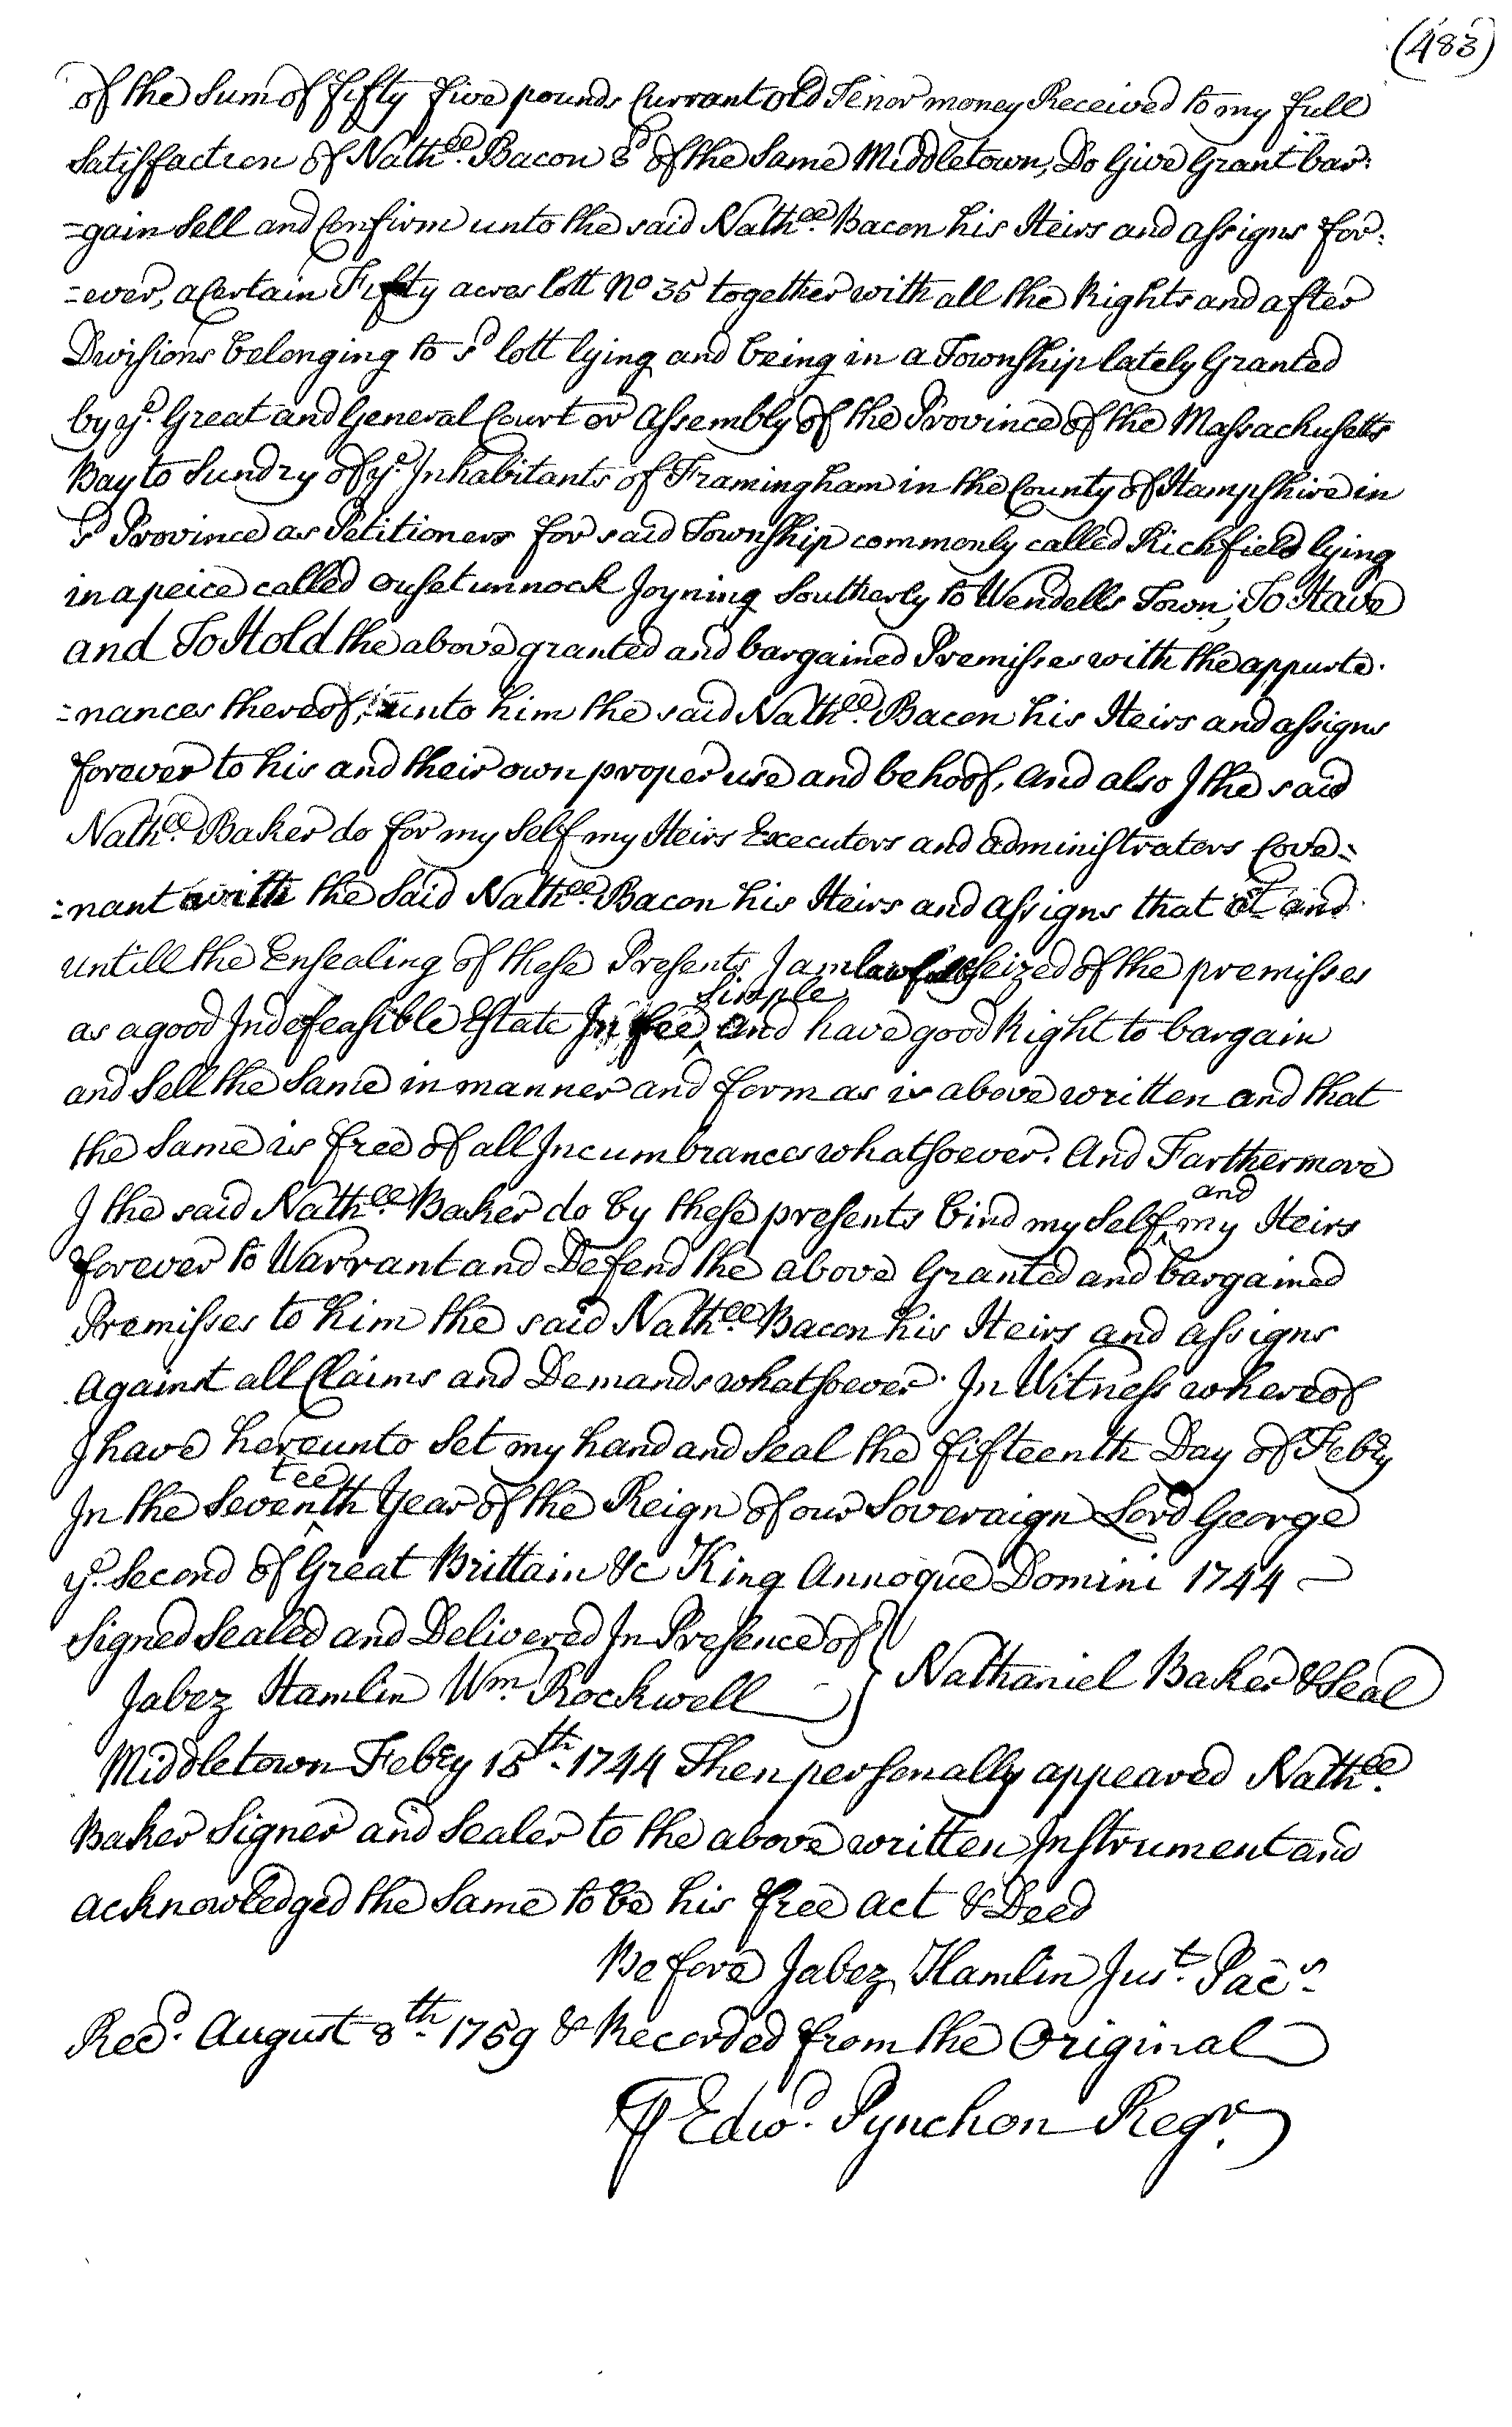 (483)
of the Sum of fifty five pounds Currant old Tenor money Received to my full
Satisfaction of Nathll. Bacon 3d of the Same Middletown, Do Give Grant bar:
=gain Sell and Confirm unto the said Nathll. Bacon his Heirs and assigns for:
=ever, a Certain Fifty acres lott No 35 together with all the Rights and after
Divisions belonging to sd lott lying and being in a Township lately Granted
by ye. Great and General Court or Assembly of the Province of the Massachusetts
Bay to Sundry of ye. Inhabitants of Framingham in the County of Hampshire in
sd Province as Petitioners for said Township commonly called Richfield lying
in a peice called ousetunnock Joyning Southerly to Wendells Town; To Have
and To Hold the above granted and bargained Premisses with the appurte-
=nances thereof, unto him the said Nathll. Bacon his Heirs and assigns
forever to his and their own proper use and behoof, and also I the said
Nathll. Baker do for my Self my Heirs Executors and administrators Cove=
=nant with the Said Nathll. Bacon his Heirs and assigns that at and
untill the Ensealing of these Presents I am lawfully Seized of the premisses
as a good Indefeasible Estate In fee ^ Simple and have good Right to bargain
and Sell the Same in manner and form as is above written and that
the Same is free of all Incumbrances whatsoever. And Farthermore
I the said Nathll. Baker do by these presents bind my Self ^ and my Heirs
forever to Warrant and Defend the above Granted and bargained
Premisses to him the said Nathll. Bacon his Heirs and assigns
Against all Claims and Demands whatsoever. In Witness whereof
I have hereunto Set my hand and Seal the fifteenth Day of Febry
In the Seven^teeth Year of the Reign of our Soveraign Lord George
ye. Second of Great Brittain &c King Annoque Domini 1744
Signed Sealed and Delivered In Presence of }
Jabez Hamlin Wm. Rockwell } Nathaniel Baker & Seal
Middletown Febry 15th. 1744 Then personally appeared Nathll.
Baker Signer and Sealer to the above written Instrument and
acknowledged the Same to be his free act & Deed
Before Jabez Hamlin Just. Pacs.
Recd. August 8th. 1759 & Recorded from the Original
⅌ Edwd. Pynchon Regr.